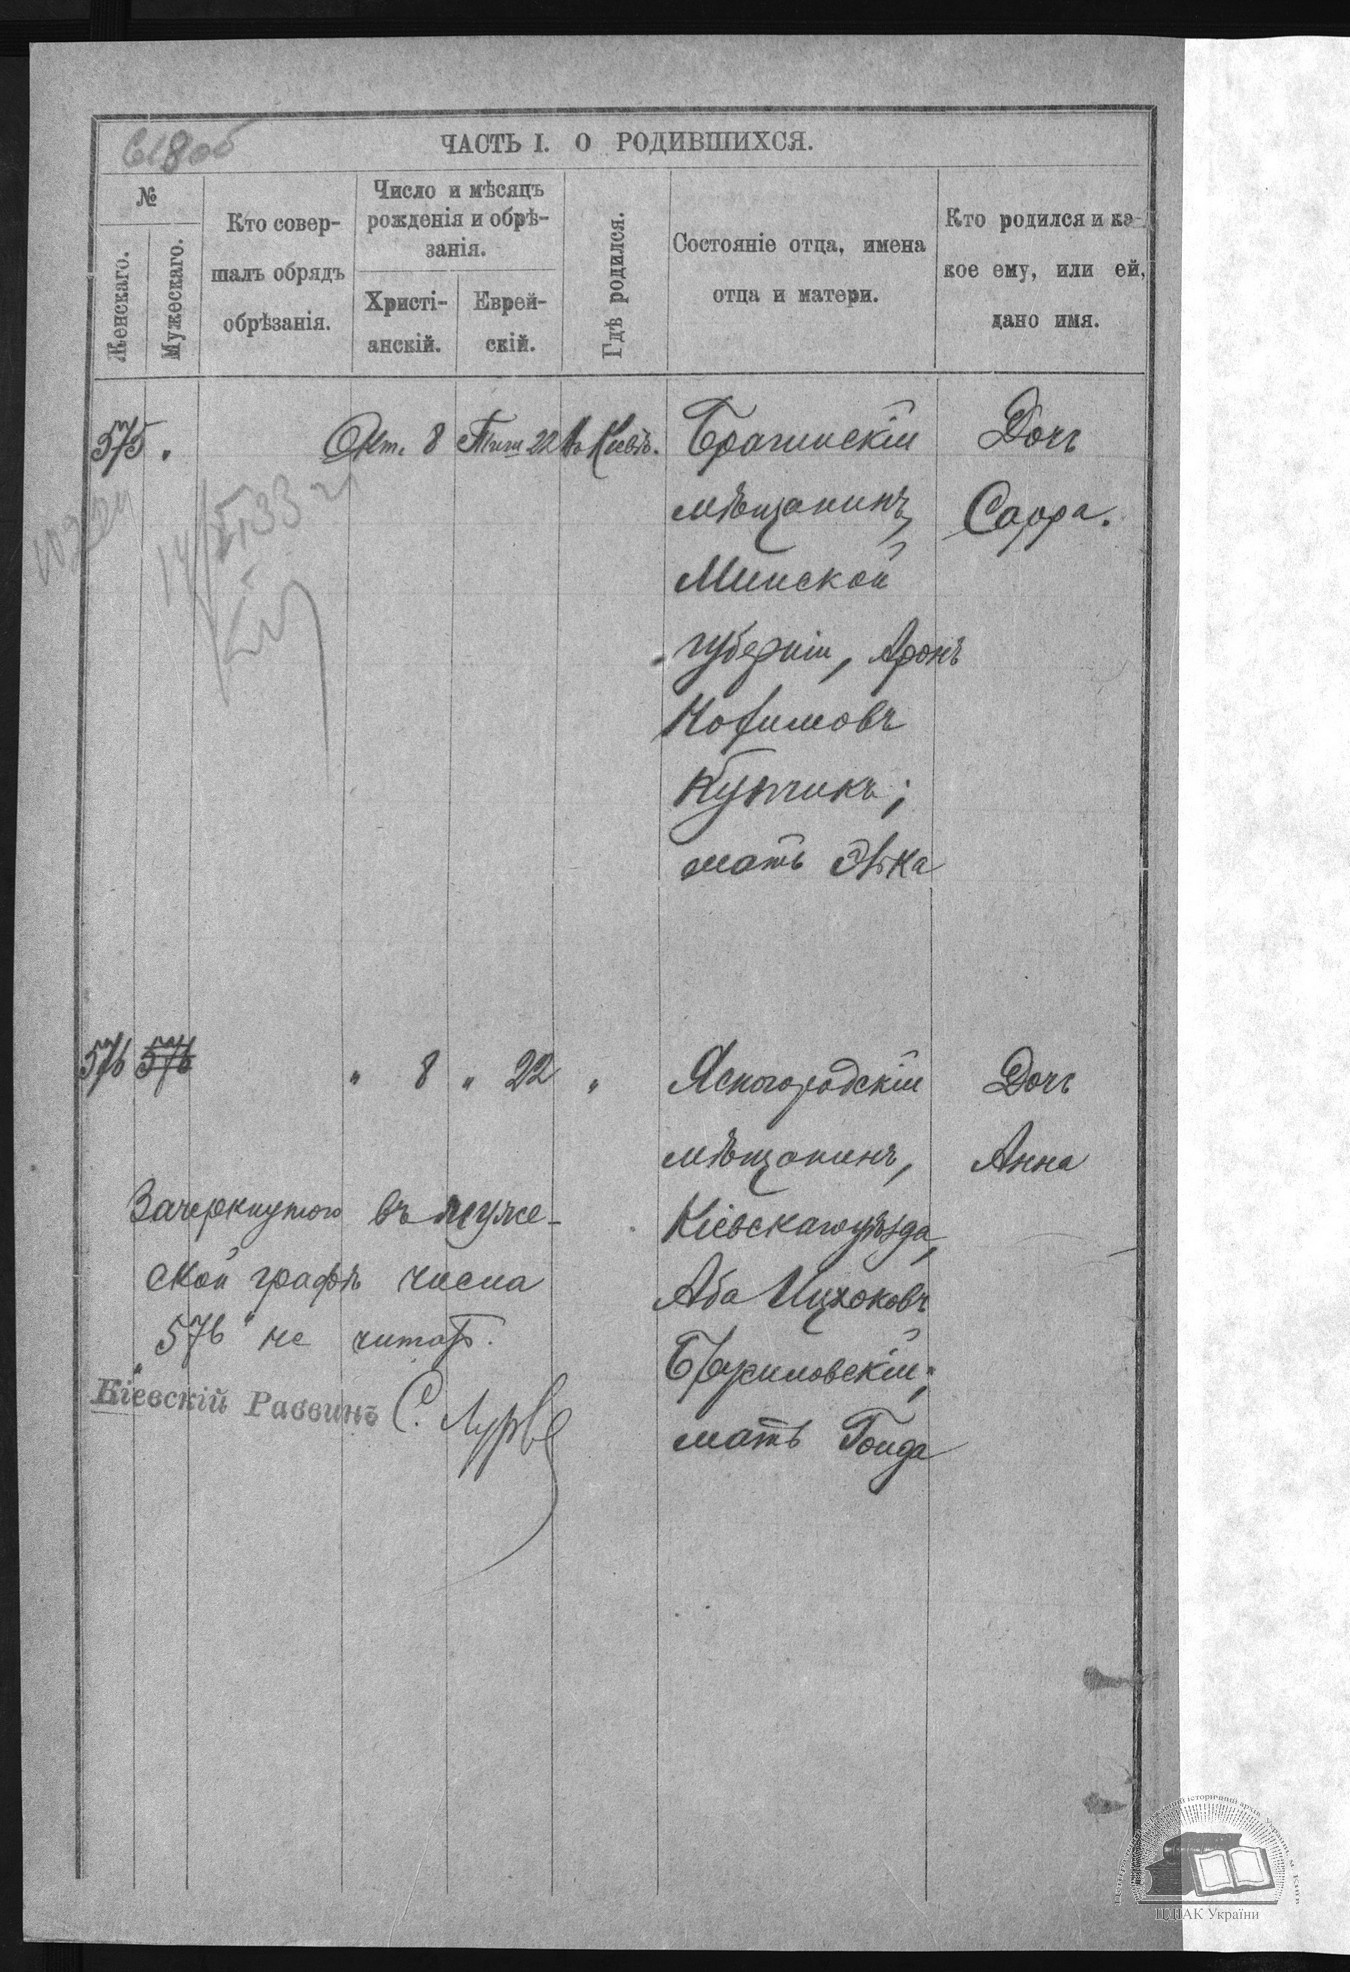 618 об
ЧАСТЬ I. О РОДИВШИХСЯ.
№
Женскаго.
Мужескаго.
Кто совер-
шалъ обрядъ
обрѣзанія.
Число и мѣсяцъ
рожденія и обрѣ-
занія.
Христі-
анскій.
Еврей-
скій.
Гдѣ родился.
Состояніе отца, имена
отца и матери.
Кто родился и ка-
кое ему, или ей,
дано имя.
575. Окт. 8 Тиш 22 въ Кіевѣ.
Брагинскій
мѣщанинъ,
Минской
губерніи, Аронъ
Купчикъ;
мать Этка
Дочь
Сарра.
14/XI 33 г
576 576 " 8 " 22 "
Ясногородскій
мѣщанинъ,
Кіевскаго уѣзда,
Аба Ицхоковъ
мать Гоида
Дочь
Анна
Зачеркнутого въ муже-
ской графѣ числа
"576" не читать.
Кіевскій Раввинъ С. Лурье
ЦДІАК України